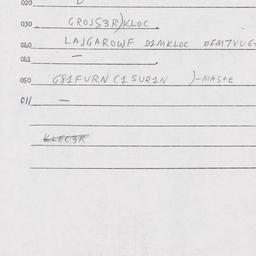 020
030 GROJS3R)KLOC
040 LAJGAROWF D1MKLOC
041 —
050 G81FURN C1 SUR1N )-MASTE
011 —